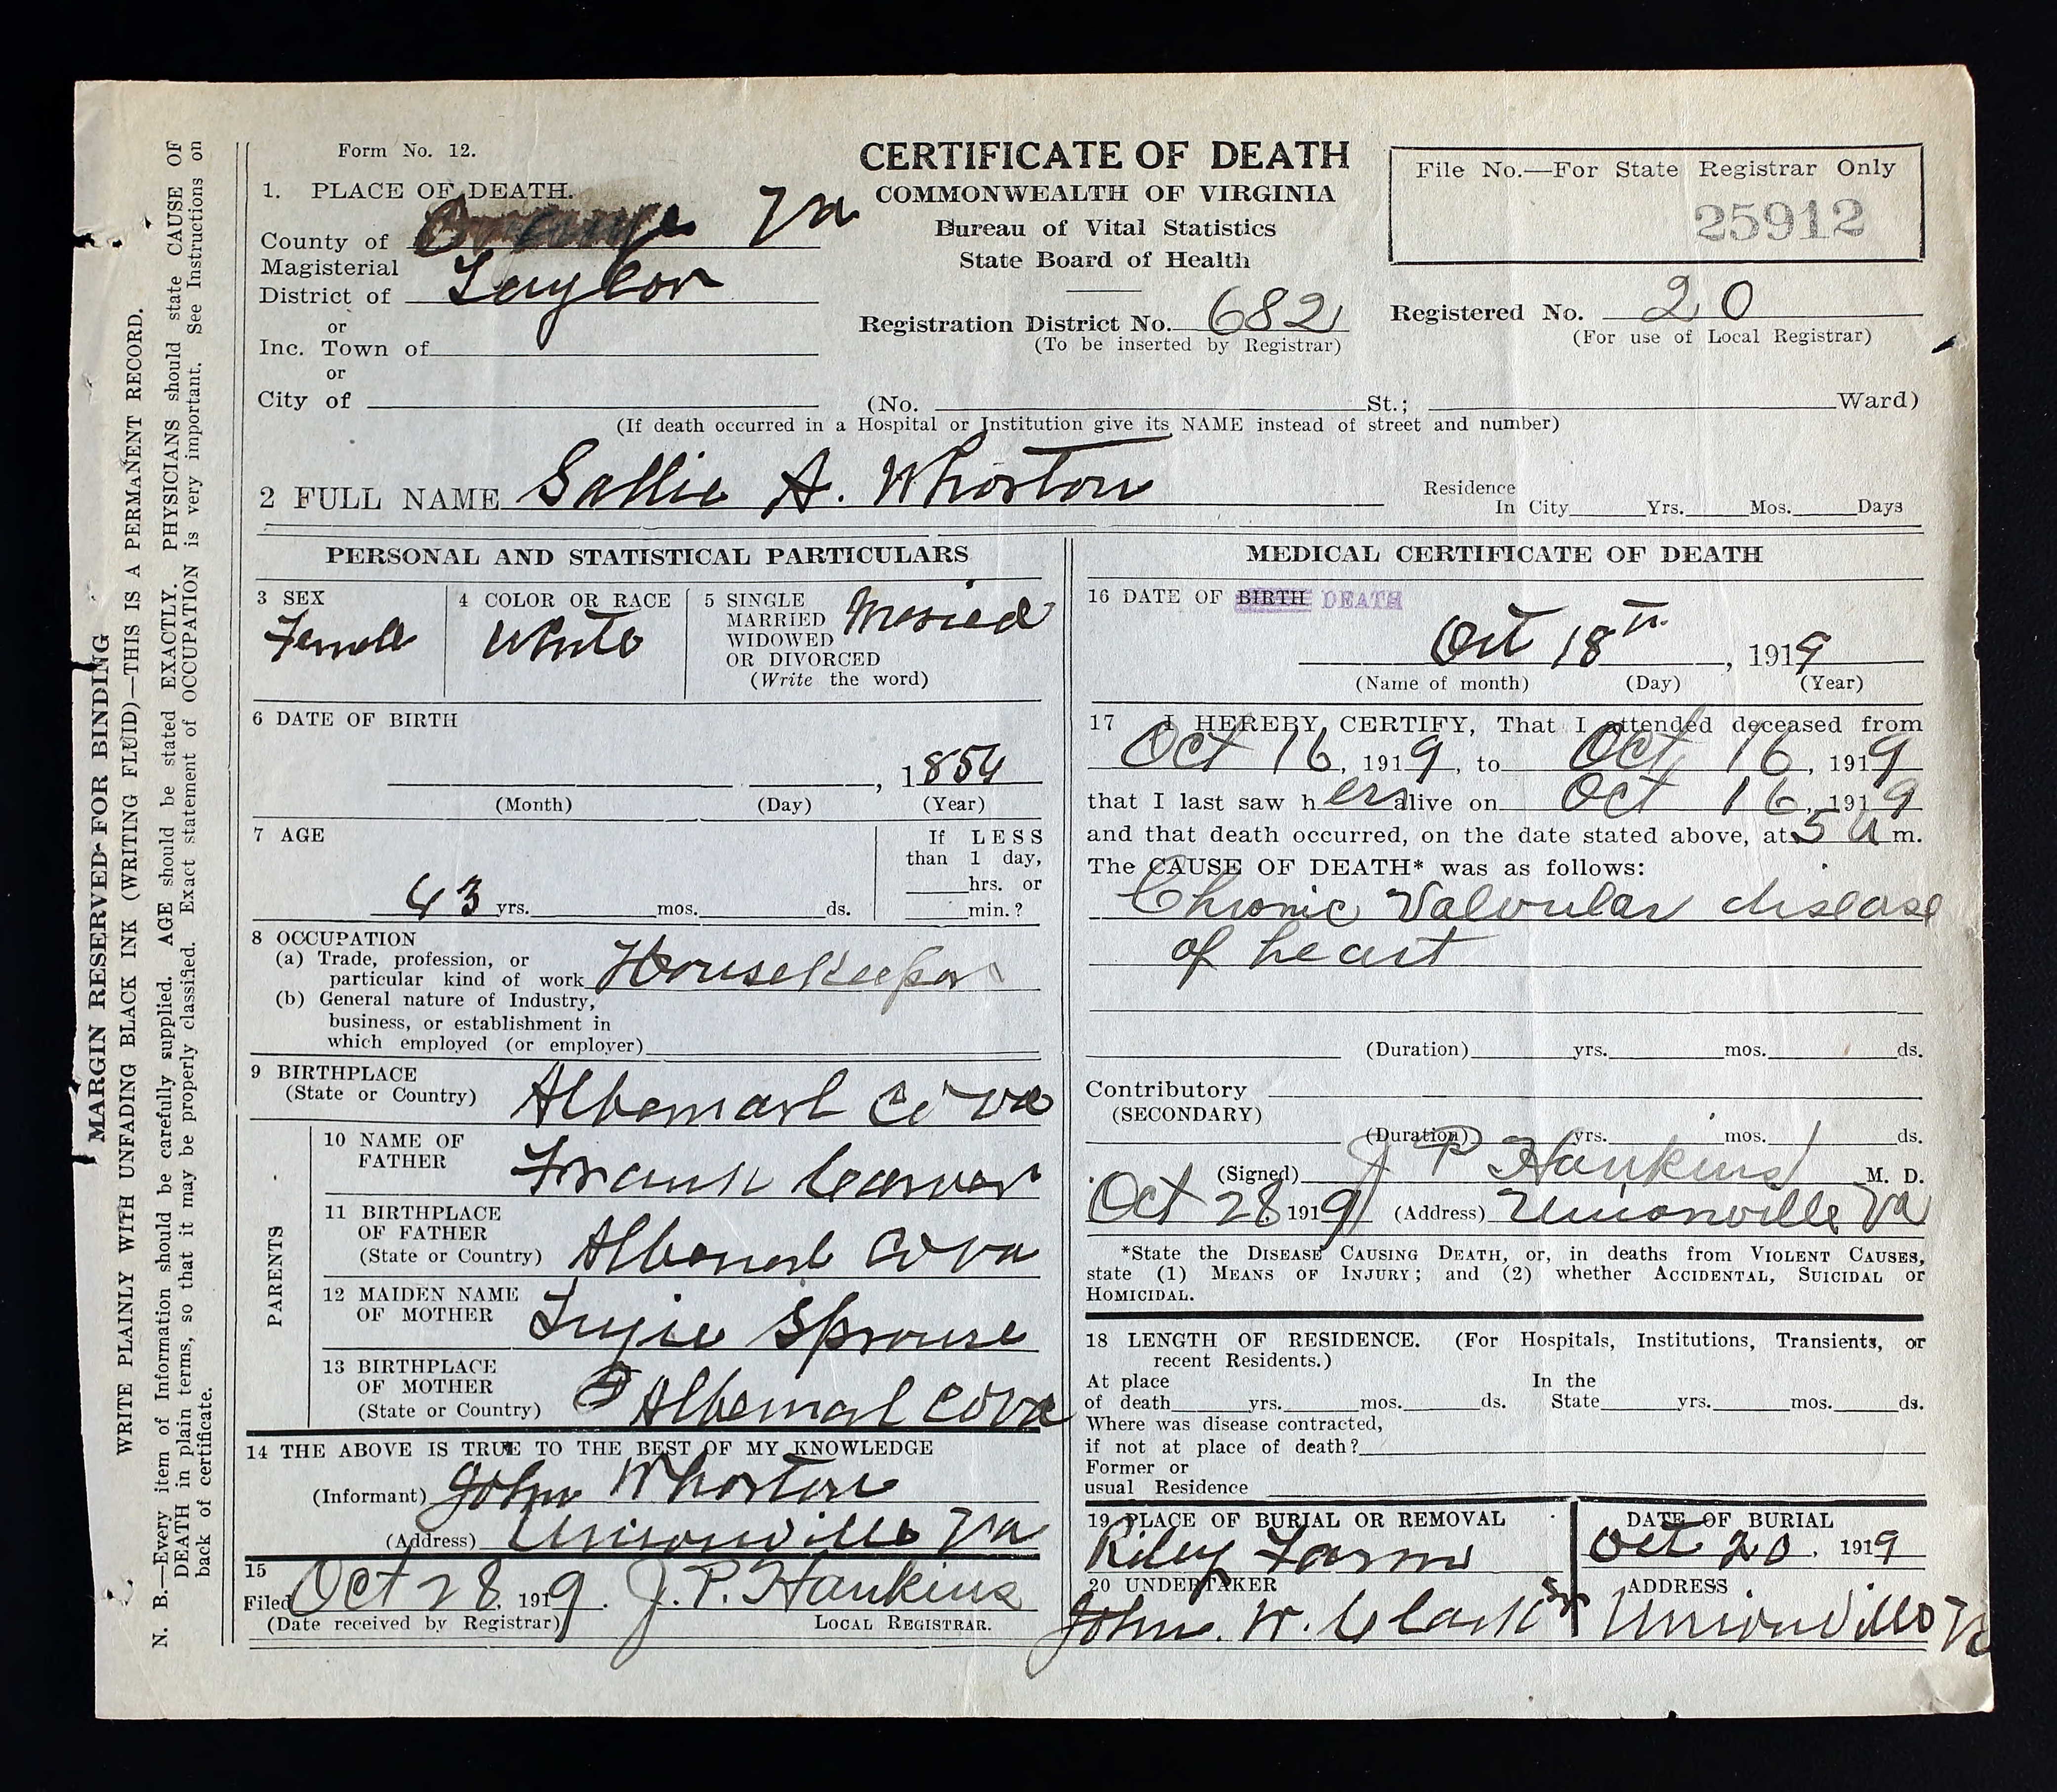 MARGIN RESERVED FOR BINDING
WRITE PLAINLY WITH UNFADING BLACK INK (WRITING FLUID)—THIS IS A PERMANENT RECORD.
N. B.—Every item of Information should be carefully supplied. AGE should be stated EXACTLY. PHYSICIANS should state CAUSE OF
DEATH in plain terms, so that it may be properly classified. Exact statement of OCCUPATION is very important. See Instructions on
back of certificate.
Form No. 12.
CERTIFICATE OF DEATH
COMMONWEALTH OF VIRGINIA
Bureau of Vital Statistics
State Board of Health
File No.—For State Registrar Only
25912
1. PLACE OF DEATH.
County of Orange Va
Magisterial
District of Taylor
or
Inc. Town of
or
City of (No. St.; Ward)
Registration District No. 682
(To be inserted by Registrar)
Registered No. 20
(For use of Local Registrar)
(If death occurred in a Hospital or Institution give its NAME instead of street and number)
2 FULL NAME Sallie A. Whorton
Residence
In City Yrs. Mos. Days
PERSONAL AND STATISTICAL PARTICULARS
3 SEX
Female
4 COLOR OR RACE
White
5 SINGLE
MARRIED
WIDOWED
OR DIVORCED
(Write the word)
Maried
6 DATE OF BIRTH
, 1854
(Month) (Day) (Year)
7 AGE
63 yrs. mos. ds.
If LESS
than 1 day,
hrs. or
min.?
8 OCCUPATION
(a) Trade, profession, or
particular kind of work Housekeeper
(b) General nature of Industry,
business, or establishment in
which employed (or employer)
9 BIRTHPLACE
(State or Country) Albemarl Co Va
PARENTS
10 NAME OF
FATHER Frank Carver
11 BIRTHPLACE
OF FATHER
(State or Country) Albemarl Co Va
12 MAIDEN NAME
OF MOTHER Sprouse
13 BIRTHPLACE
OF MOTHER
(State or Country) Albemarl Co Va
14 THE ABOVE IS TRUE TO THE BEST OF MY KNOWLEDGE
(Informant) John Whorton
(Address) Unionville Va
15
Filed Oct 28, 1919. J. P. Hankins
(Date received by Registrar) LOCAL REGISTRAR.
MEDICAL CERTIFICATE OF DEATH
16 DATE OF BIRTH DEATH
Oct 18th, 1919
(Name of month) (Day) (Year)
17 I HEREBY CERTIFY, That I attended deceased from
Oct 16, 1919, to Oct 16, 1919
that I last saw her alive on Oct 16, 1919
and that death occurred, on the date stated above, at 5 a m.
The CAUSE OF DEATH* was as follows:
Chronic Valvular disease
of heart
(Duration) yrs. mos. ds.
Contributory
(SECONDARY)
(Duration) yrs. mos. ds.
(Signed) J P Hankins M. D.
Oct 28, 1919 (Address) Unionville Va
*State the DISEASE CAUSING DEATH, or, in deaths from VIOLENT CAUSES,
state (1) MEANS OF INJURY; and (2) whether ACCIDENTAL, SUICIDAL or
HOMICIDAL.
18 LENGTH OF RESIDENCE. (For Hospitals, Institutions, Transients, or
recent Residents.)
At place In the
of death yrs. mos. ds. State yrs. mos. ds.
Where was disease contracted,
if not at place of death?
Former or
usual Residence
19 PLACE OF BURIAL OR REMOVAL
Riley Farm
DATE OF BURIAL
Oct 20, 1919
20 UNDERTAKER
John. W. Clark Sr
ADDRESS
Unionville Va